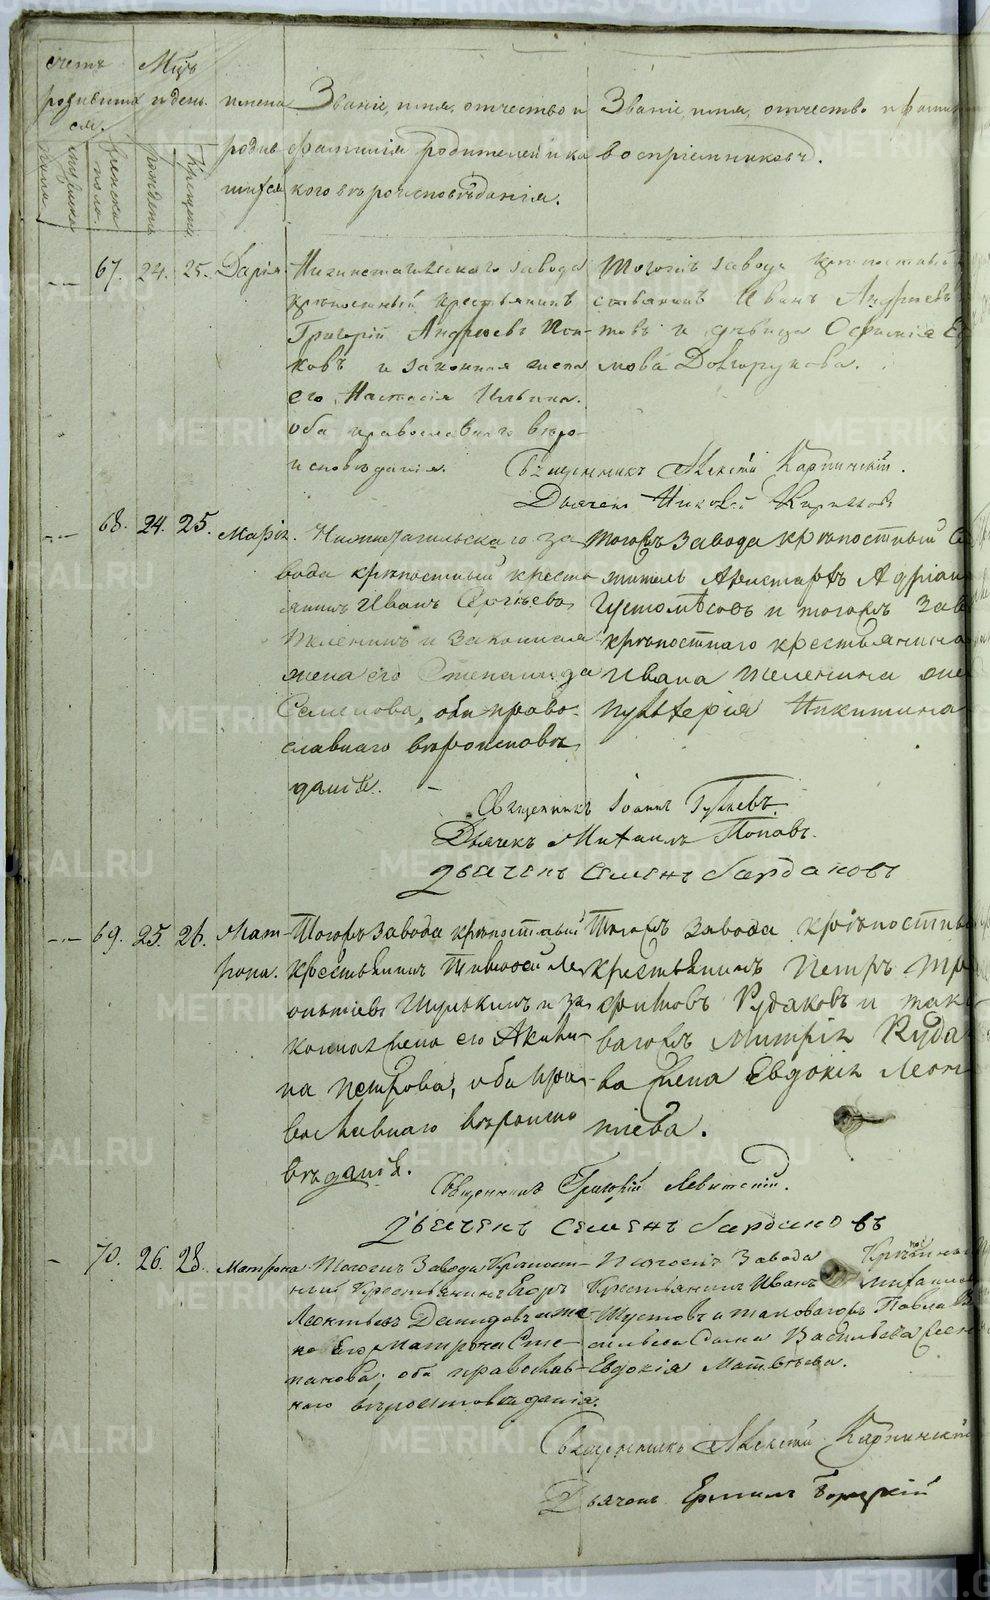 счетъ
родившихся.
мужеска пола
женска пола.
Мцъ и день.
рожденія
крещенія
имена родившихся
Званіе, имя, отчество и
фамилія родителей и ка
кого вѣроисповѣданія.
Званіе, имя, отчество и фамилія
воспріемниковъ.
67. 24. 25. Дарія.
Нижнетагильскаго завода
крѣпостный крестьянинъ
Григорій Андреевъ
ковъ и законная жена
его Настасія Ильина.
оба православнаго вѣро-
исповѣданія.
тогожъ завода
Иванъ Андреевъ
и дѣвица
Долгорукова.
Священникъ Алексѣй Карпинскій.
Дьячекъ Николай
68. 24. 25. Марія.
Нижнетагильскаго за
вода крѣпостный кресть
янинъ Иванъ Сергѣевъ
Пеленинъ и законная
жена его Степанида
Семенова, оба право-
славнаго вѣроисповѣ
данія.
тогожъ завода крѣпостный
житель Аристархъ Адріан
Густомѣсовъ и тогожъ заво
крѣпостнаго крестьянина
Ивана Пеленина жена
Пульхерія Никитина
Священникъ Іоаннъ
Дьячекъ Михаилъ Поповъ.
Дьячекъ Семенъ Бардаковъ
69. 25. 26. Мат-
рона.
Тогожъ завода крѣпостный
крестьянинъ Тимофей Ле
онтіевъ Шулькинъ и за
конная жена его Акили-
на Петрова, оба пра-
вославнаго вѣроиспо
вѣданія.
Тогожъ завода крѣпостный
крестьянинъ Петръ Тр
фимовъ Рудаковъ и тако
вагожъ Митрія Руда
ва жена Евдокія Леон
тіева.
Священникъ Григорій Левитскій.
Дьячекъ Семенъ Бардаковъ
70. 26. 28. Матрона
Тогожъ завода крѣпост-
ный крестьянинъ Егоръ
Леонтьевъ Давидовъ и же
на его Матрона Сте-
панова; оба православ-
наго вѣроисповѣданія.
Тогожъ завода крѣпостный
крестьянинъ Иванъ Михаилов
Шустовъ и таковагожъ Павла В
сильева Васильева жена
Евдокія Матвѣева.
Священникъ Алексѣй Карпинскій
Дьячекъ Ермилъ
METRIKI.GASO-URAL.RU